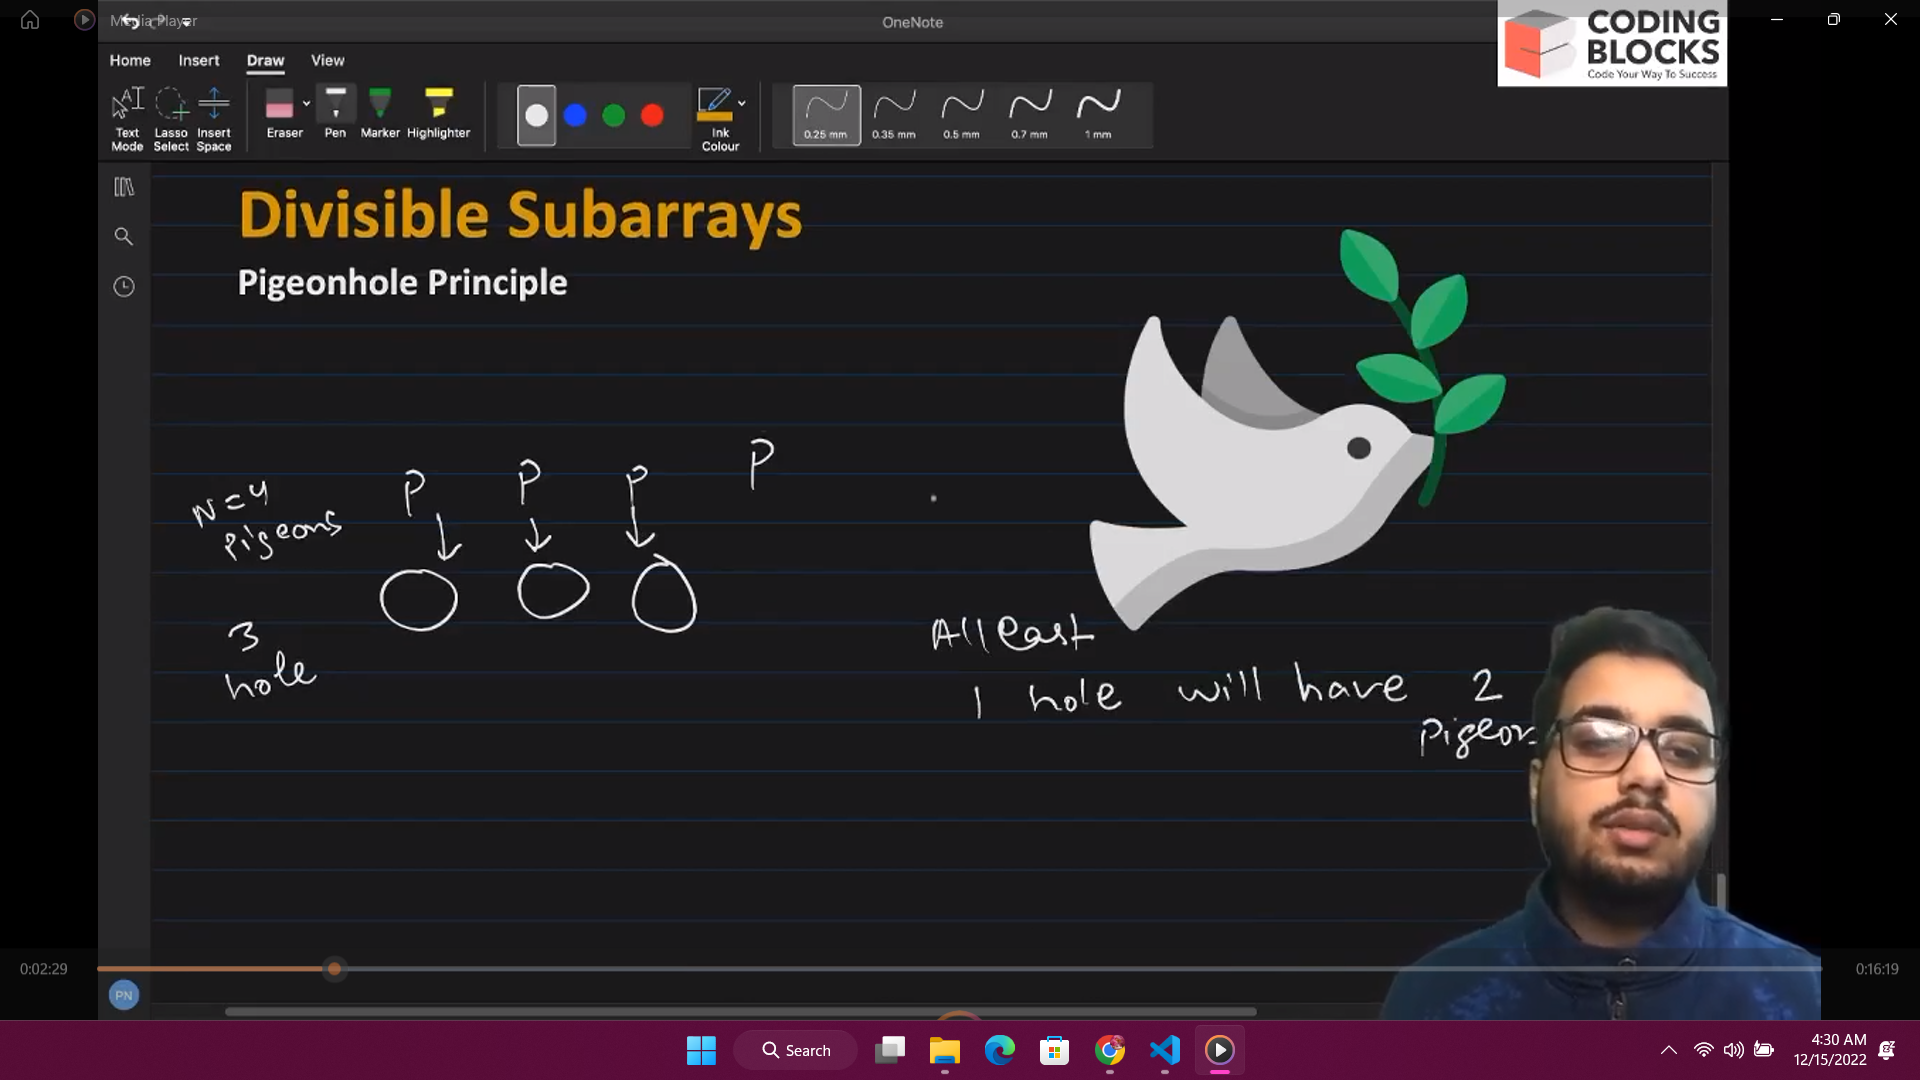 Media Player
OneNote
CODING
BLOCKS
Code Your Way To Success
Home Insert Draw View
Text Mode
Lasso Select
Insert Space
Eraser
Pen
Marker
Highlighter
Ink Colour
0.25 mm
0.35 mm
0.5 mm
0.7 mm
1 mm
Divisible Subarrays
Pigeonhole Principle
P P P P
N=4
Pigeons
3
hole
Atleast
1 hole will have 2
pigeon
0:02:29
0:16:19
PN
Search
4:30 AM
12/15/2022